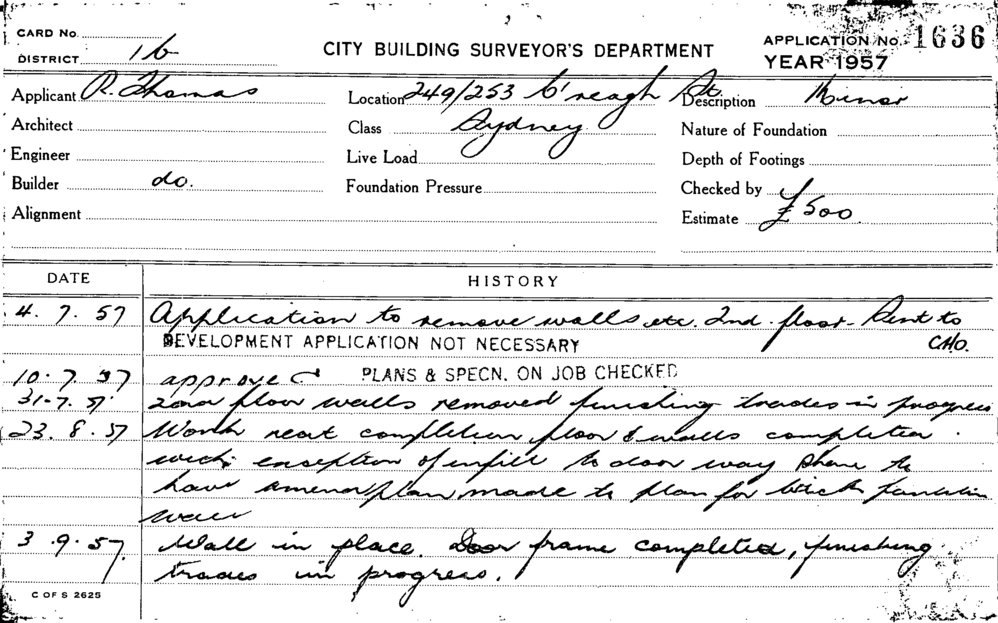 CARD No.
DISTRICT 1b
CITY BUILDING SURVEYOR'S DEPARTMENT
APPLICATION No. 1636
YEAR 1957
Applicant R. Thomas
Location 249/253 C'reagh St.
Description Minor
Architect
Class Sydney
Nature of Foundation
Engineer
Live Load
Depth of Footings
Builder do.
Foundation Pressure
Checked by
Alignment
Estimate £500
DATE
HISTORY
4. 7. 57 Application to remove walls etc. 2nd. floor. Sent to
DEVELOPMENT APPLICATION NOT NECESSARY C.H.O.
10. 7. 57 approved PLANS & SPECN. ON JOB CHECKED
31. 7. 57 2nd floor walls removed finishing trades in progress
23. 8. 57 Work near completion floor & walls completed.
with exception of infill to door way to
have plan made to plan for brick
wall
3. 9. 57. Wall in place. Door frame completed, finishing
trades in progress.
C OF S 2625